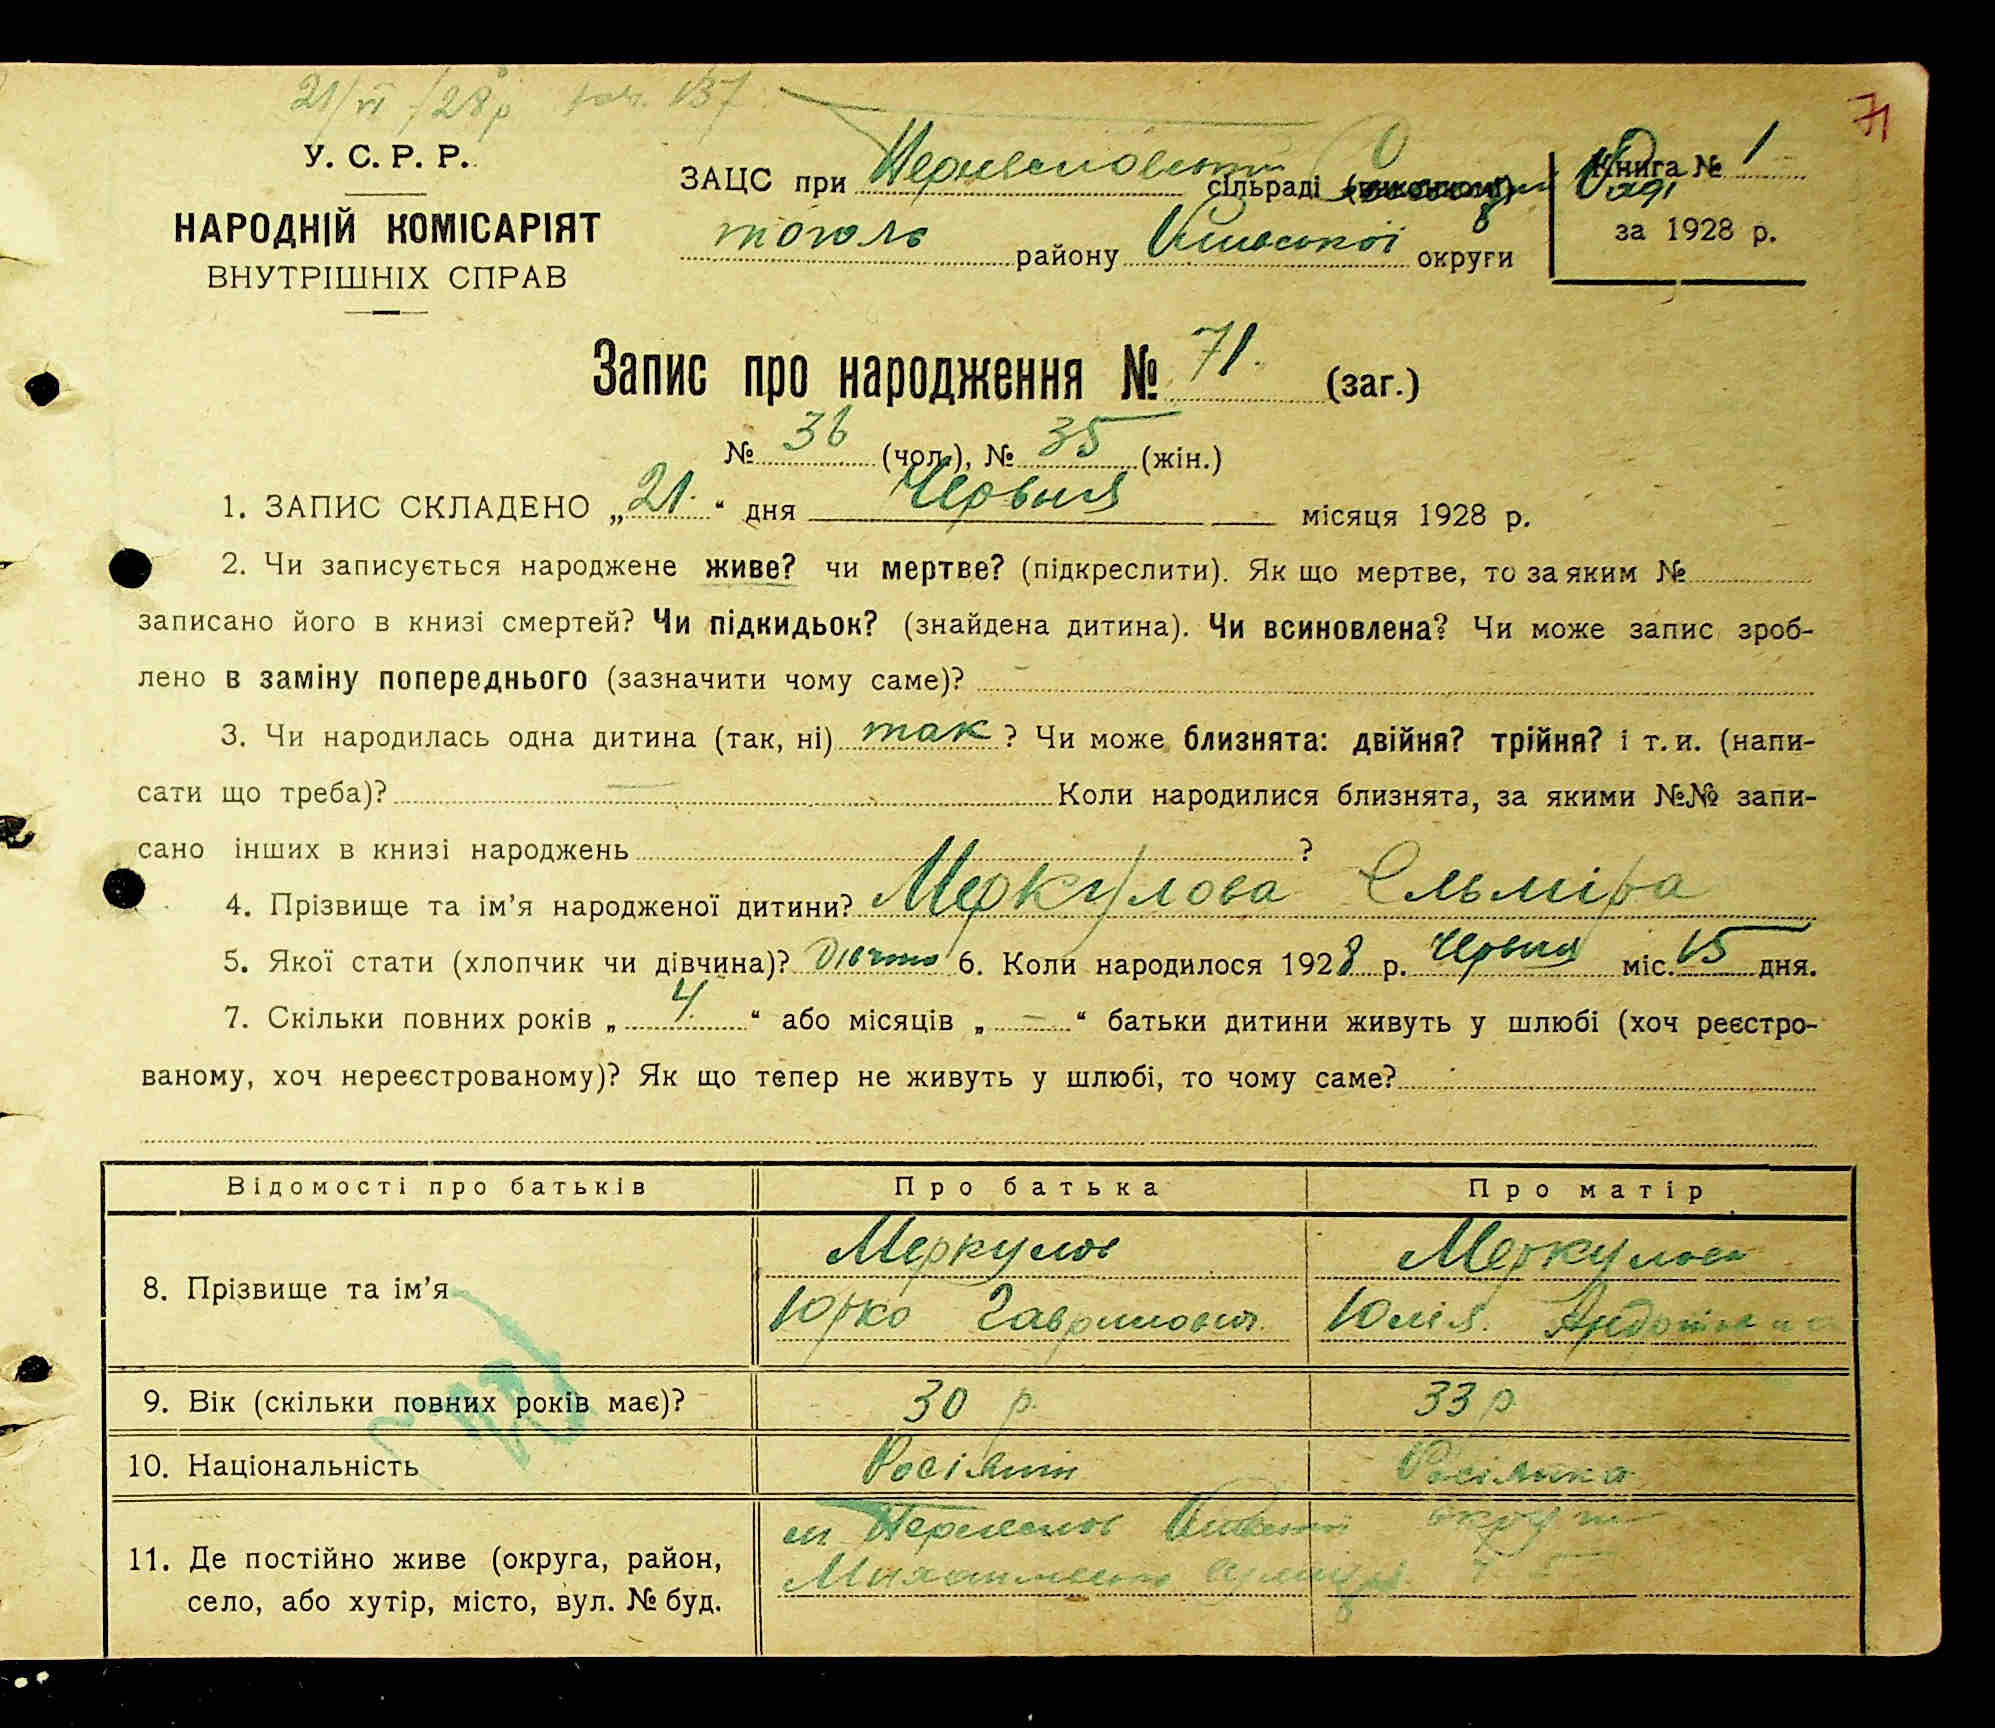 21/VI /28р 137
71
У. С. Р. Р.
НАРОДНІЙ КОМІСАРІЯТ
ВНУТРІШНІХ СПРАВ
ЗАЦС при сільраді
району Київської округи
Книга № 1
за 1928 р.
Запис про народження № 71. (заг.)
№ 36 (чол.), № 35 (жін.)
1. ЗАПИС СКЛАДЕНО „21.“ дня Червня місяця 1928 р.
2. Чи записується народжене живе? чи мертве? (підкреслити). Як що мертве, то за яким №
записано його в книзі смертей? Чи підкидьок? (знайдена дитина). Чи всиновлена? Чи може запис зроб-
лено в заміну попереднього (зазначити чому саме)? –
3. Чи народилась одна дитина (так, ні) так ? Чи може близнята: двійня? трійня? і т. и. (напи-
сати що треба)? — Коли народилися близнята, за якими №№ запи-
сано інших в книзі народжень ?
4. Прізвище та ім’я народженої дитини? Меркулова Ельміра
5. Якої стати (хлопчик чи дівчина)? 6. Коли народилося 1928 р. Червня міс. 15 дня.
7. Скільки повних років „ 4. “ або місяців „ – “ батьки дитини живуть у шлюбі (хоч реєстро-
ваному, хоч нереєстрованому)? Як що тепер не живуть у шлюбі, то чому саме?
Відомості про батьків Про батька Про матір
8. Прізвище та ім’я Меркулов Меркулова
Юрко Гаврилович Юлія
9. Вік (скільки повних років має)? 30 р. 33 р
10. Національність Росіянин Росіянка
11. Де постійно живе (округа, район,
село, або хутір, місто, вул. № буд.
м Переяслов Київської округи